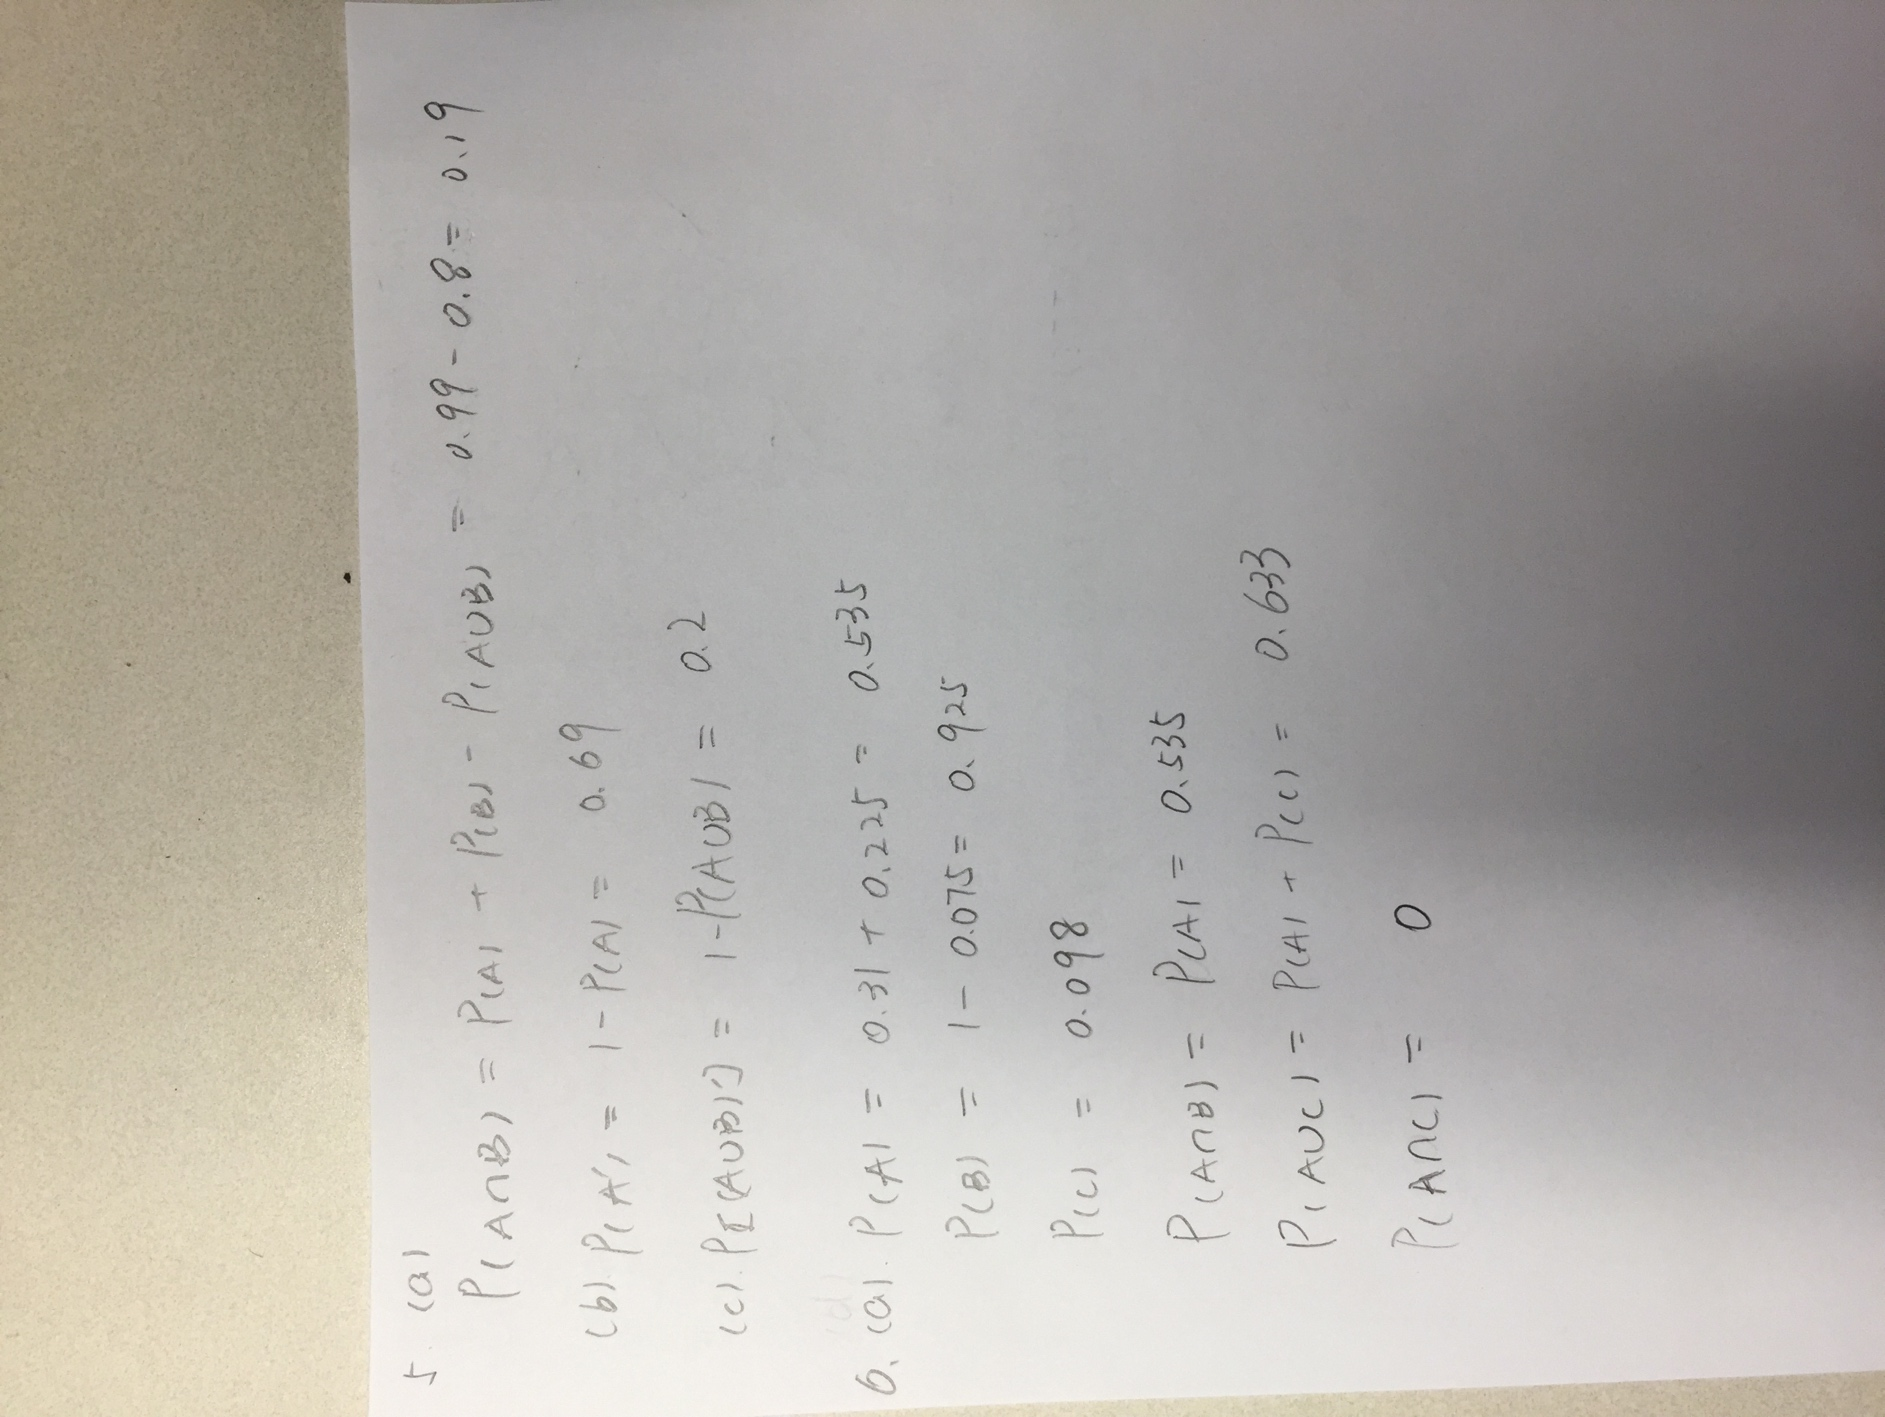 5. (a)
P(A∩B) = P(A) + P(B) - P(A∪B) = 0.99 - 0.8 = 0.19
(b). P(A') = 1 - P(A) = 0.69
(c). P[(A∪B)'] = 1 - P(A∪B) = 0.2
6. (a). P(A) = 0.31 + 0.225 = 0.535
P(B) = 1 - 0.075 = 0.925
P(C) = 0.098
P(A∩B) = P(A) = 0.535
P(A∪C) = P(A) + P(C) = 0.633
P(A∩C) = 0